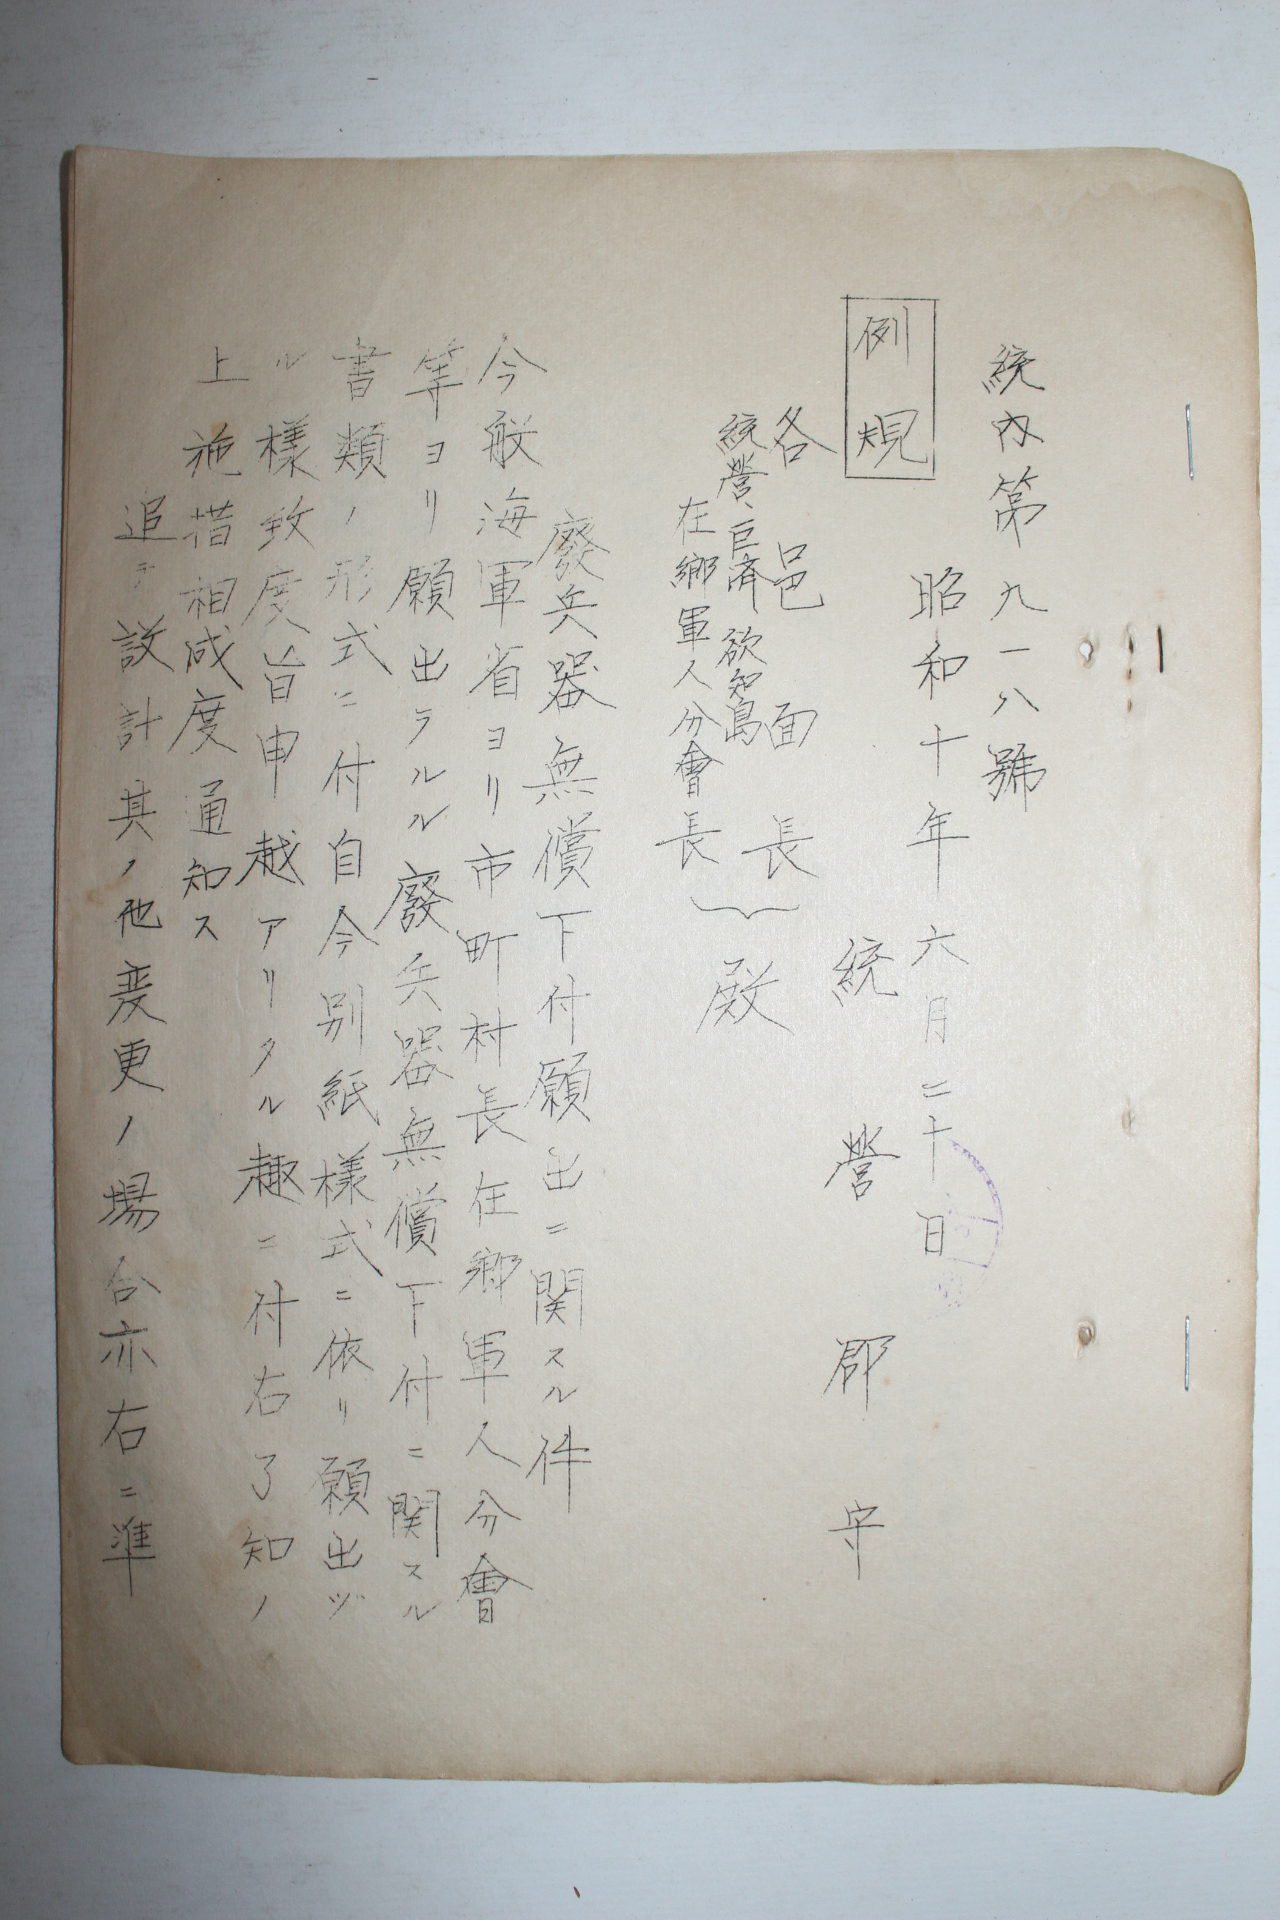 統內第九一八號
昭和十年六月二十日
例規
統營郡守
各邑面長
統營、巨濟、欲知島
在鄕軍人分會長
殿
廢兵器無償下付願出ニ関スル件
今般海軍省ヨリ市町村長在郷軍人分會
等ヨリ願出ラルル廢兵器無償下付ニ関スル
書類ノ形式ニ付自今別紙様式ニ依リ願出ヅ
ル樣致度旨申越アリタル趣ニ付右了知ノ
上施措相成度通知ス
追テ設計其ノ他変更ノ場合亦右ニ準